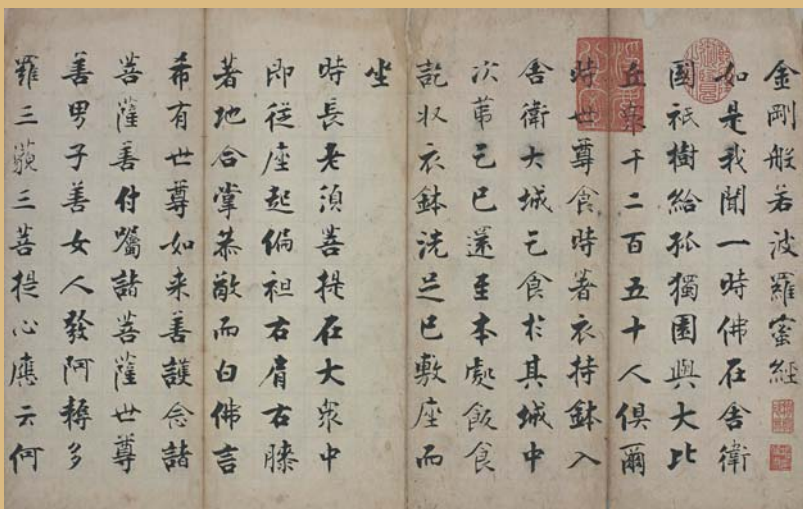 金剛般若波羅蜜經
如是我聞一時佛在舍衛
國祇樹給孤獨園與大比
丘衆千二百五十人俱爾
時世尊食時著衣持鉢入
舍衛大城乞食於其城中
次苐乞已還至本處飯食
訖収衣鉢洗足已敷座而
坐
時長老湏菩提在大衆中
即從座起偏袒右肩右膝
著地合掌恭敬而白佛言
希有世尊如来善護念諸
菩薩善付囑諸菩薩世尊
善男子善女人發阿耨多
羅三藐三菩提心應云何